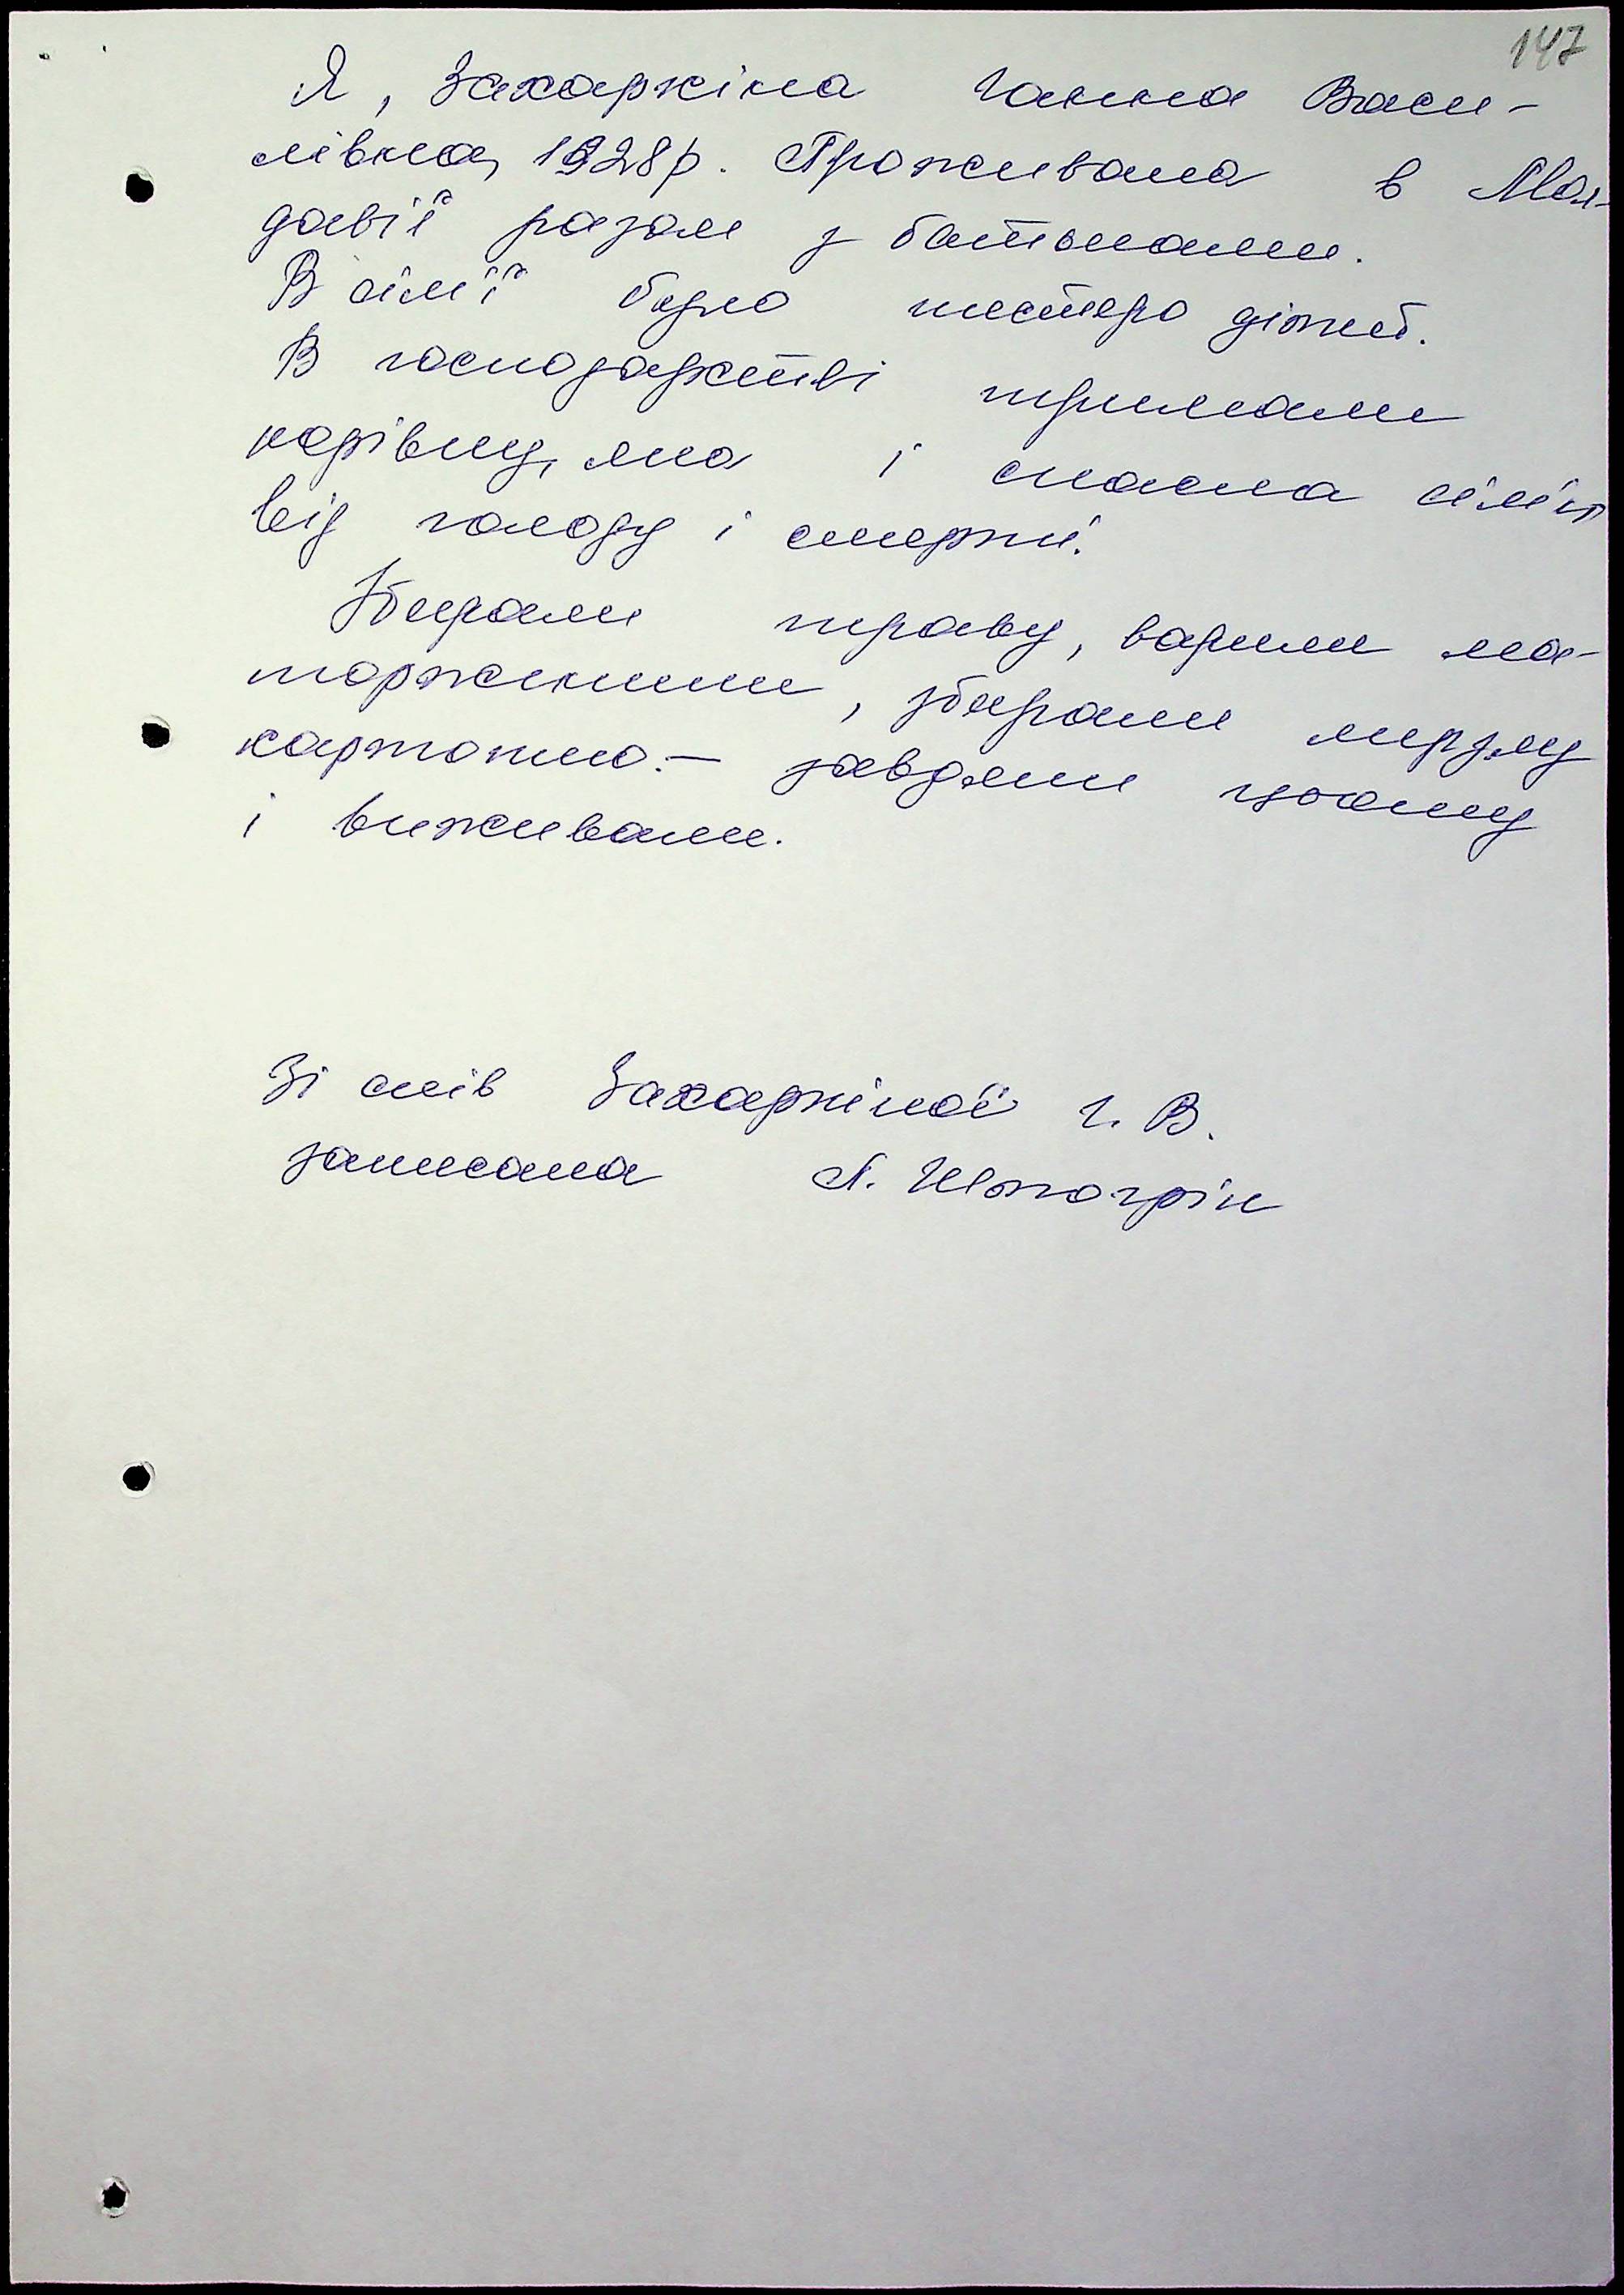 147
Я, Захаркіна Ганна Васи-
лівна, 1928 р. Проживала в Мол-
давії разом з батьками.
В сім'ї було шестеро дітей.
В господарстві тримали
корівку, яка і спасла сім'ю
від голоду і смерті.
Збирали траву, варили ма-
торженики, збирали мерзлу
картоплю. – завдяки цьому
і виживали.
Зі слів Захаркіної Г. В.
записала Л.